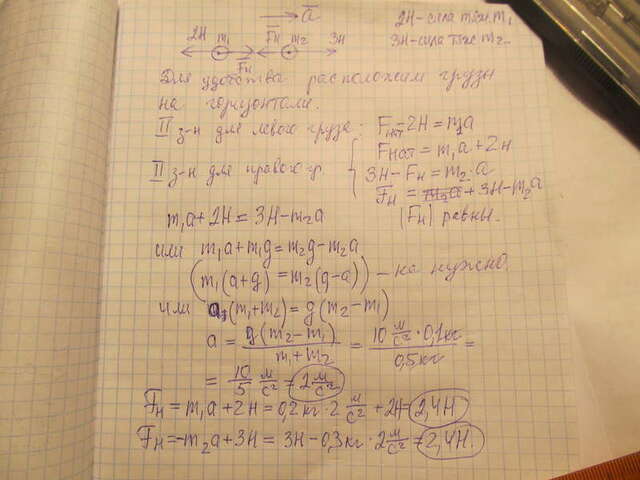 a
2Н-сила тяж. m₁
3Н-сила тяж m₂
2Н m₁ Fн m₂ 3Н
Fн
Для удобства расположим грузы
на горизонтали.
II з-н для левого груза: Fнат-2Н=m₁a
Fнат=m₁a+2н
II з-н для правого гр. 3Н-Fн=m₂·a
Fн = m₂a+3Н-m₂a
m₁a+2Н=3Н-m₂a |Fн| равны.
или m₁a+m₁g=m₂g-m₂a
(m₁(a+g)=m₂(g-a)) - не нужно.
или a(m₁+m₂)=g(m₂-m₁)
a = g(m₂-m₁)/m₁+m₂ = 10 м/с²·0,1кг/0,5кг =
= 10/5 м/с² = 2 м/с²
Fн=m₁a+2н=0,2кг·2 м/с²+2Н=2,4Н
Fн=-m₂a+3Н=3Н-0,3кг·2м/с²=2,4Н.